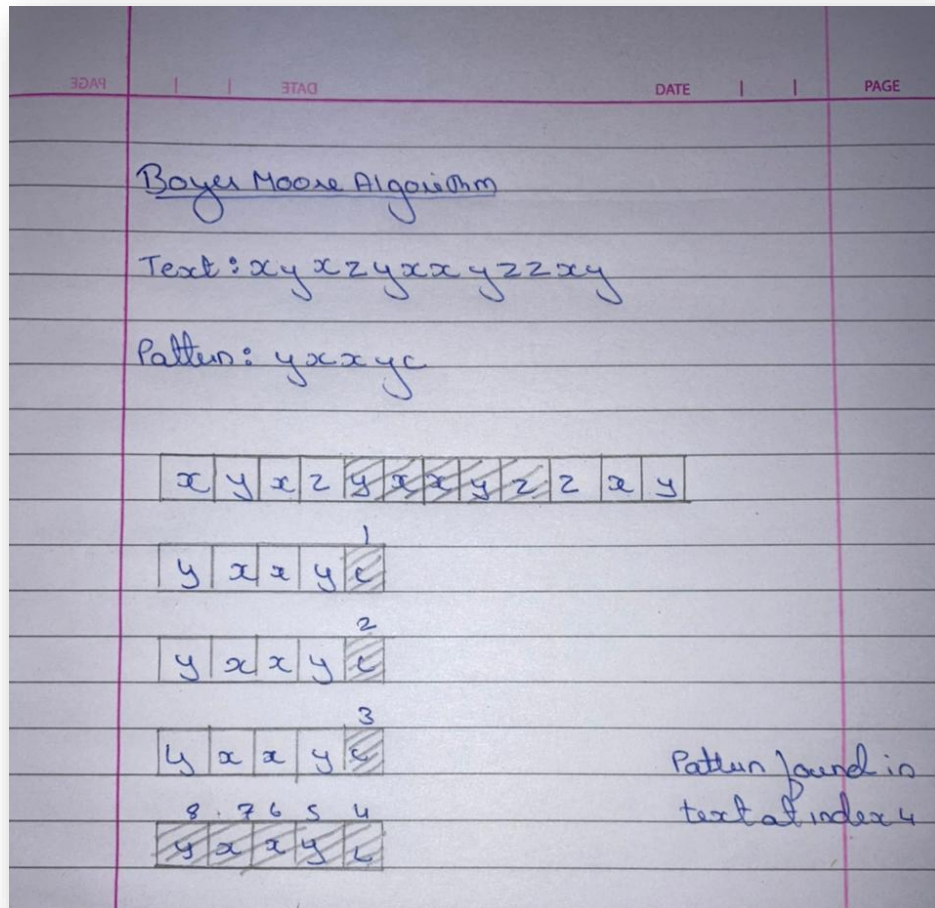 PAGE DATE DATE PAGE
Boyer Moore Algorithm
Text: xyxzyxxyzzxy
Pattern: yxxyc
x y x z y x x y z z x y
1
y x x y c
2
y x x y c
3
y x x y c
Pattern found in
8 . 7 6 5 4
text at index 4
y x x y c